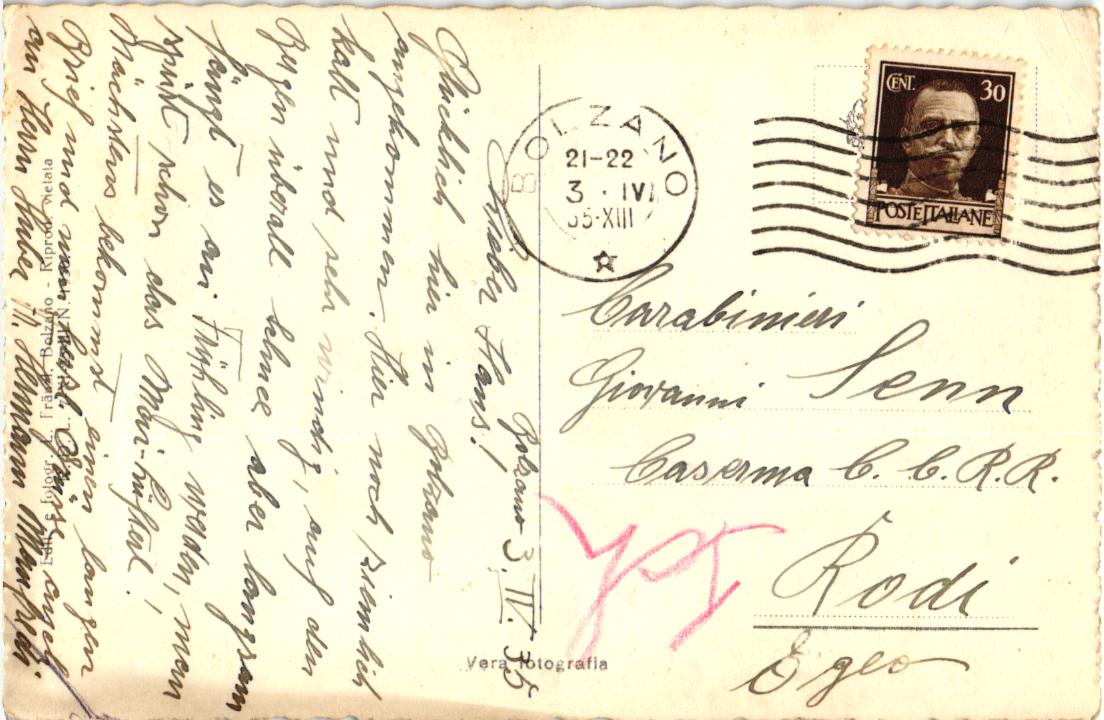 Bolzano 3. IV. 35
Lieber Hans!
Glücklich hier in Bolzano
angekommen. Hier noch ziemlich
kalt und sehr windig, auf den
Bergen überall Schnee aber langsam
fängt es an Frühling werden, man
spürt schon das Mai-Lüfterl.
Nächstens bekommst einen langen
Brief und
an Herrn Huber u. Hermann
Ediz. e fotogr. Fränzl, Bolzano - Riprod. vietata
Vera fotografia
BOLZANO
21-22
3 · IV
35-XIII
CENT. 30
POSTE ITALIANE
Carabinieri
Giovanni Senn
Caserma C. C. R.R.
Rodi
Egeo